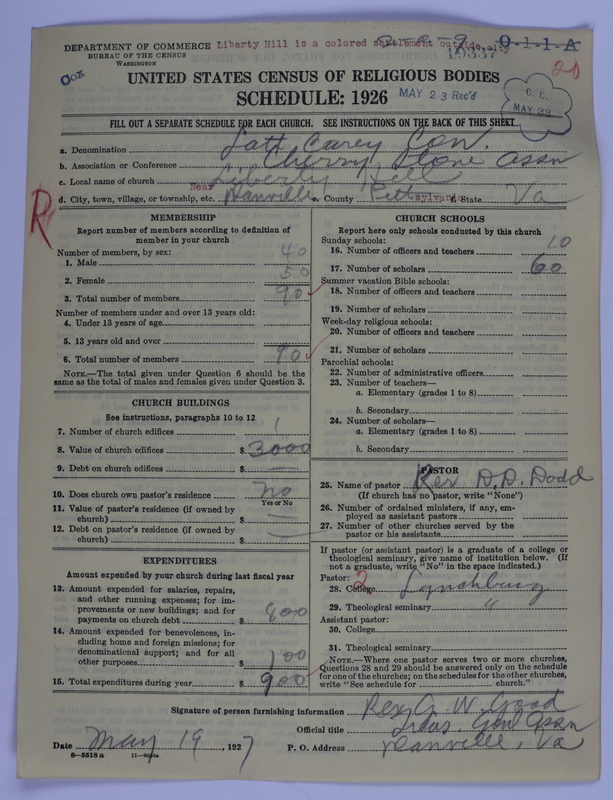 DEPARTMENT OF COMMERCE Liberty Hill is a colored settlement outside city 0-11-A
BUREAU OF THE CENSUS
WASHINGTON
20
UNITED STATES CENSUS OF RELIGIOUS BODIES
SCHEDULE: 1926 MAY 23 Rec'd
C. C.
MAY 23
FILL OUT A SEPARATE SCHEDULE FOR EACH CHURCH. SEE INSTRUCTIONS ON THE BACK OF THIS SHEET
a. Denomination Lott Carey Con.
b. Association or Conference Cherry Stone Assn
c. Local name of church Liberty Hill
d. City, town, village, or township, etc. Near Danville e. County Pittsylvania f. State Va
R
MEMBERSHIP
Report number of members according to definition of
member in your church
Number of members, by sex:
1. Male 40
2. Female 50
3. Total number of members 90
Number of members under and over 13 years old:
4. Under 13 years of age
5. 13 years old and over
6. Total number of members 90
NOTE.—The total given under Question 6 should be the
same as the total of males and females given under Question 3.
CHURCH BUILDINGS
See instructions, paragraphs 10 to 12
7. Number of church edifices 1
8. Value of church edifices $ 3000
9. Debt on church edifices $ —
10. Does church own pastor's residence no
Yes or No
11. Value of pastor's residence (if owned by
church) $ —
12. Debt on pastor's residence (if owned by
church) $ —
EXPENDITURES
Amount expended by your church during last fiscal year
13. Amount expended for salaries, repairs,
and other running expenses; for im-
provements or new buildings; and for
payments on church debt $ 800
14. Amount expended for benevolences, in-
cluding home and foreign missions; for
denominational support; and for all
other purposes $ 100
15. Total expenditures during year $ 900
CHURCH SCHOOLS
Report here only schools conducted by this church
Sunday schools:
16. Number of officers and teachers 10
17. Number of scholars 60
Summer vacation Bible schools:
18. Number of officers and teachers
19. Number of scholars
Week-day religious schools:
20. Number of officers and teachers
21. Number of scholars
Parochial schools:
22. Number of administrative officers
23. Number of teachers—
a. Elementary (grades 1 to 8)
b. Secondary
24. Number of scholars—
a. Elementary (grades 1 to 8)
b. Secondary
PASTOR
25. Name of pastor Rev. D. D. Dodd
(If church has no pastor, write "None")
26. Number of ordained ministers, if any, em-
ployed as assistant pastors
27. Number of other churches served by the
pastor or his assistants
If pastor (or assistant pastor) is a graduate of a college or
theological seminary, give name of institution below. (If
not a graduate, write "No" in the space indicated.)
Pastor: 2
28. College Lynchburg
29. Theological seminary "
Assistant pastor:
30. College
31. Theological seminary
NOTE.—Where one pastor serves two or more churches,
Questions 28 and 29 should be answered only on the schedule
for one of the churches; on the schedules for the other churches,
write "See schedule for church."
Signature of person furnishing information Rev. G. W. Good
Official title Treas. Gon Assn
Date May 19, 1927 P. O. Address Danville, Va
8-5518a